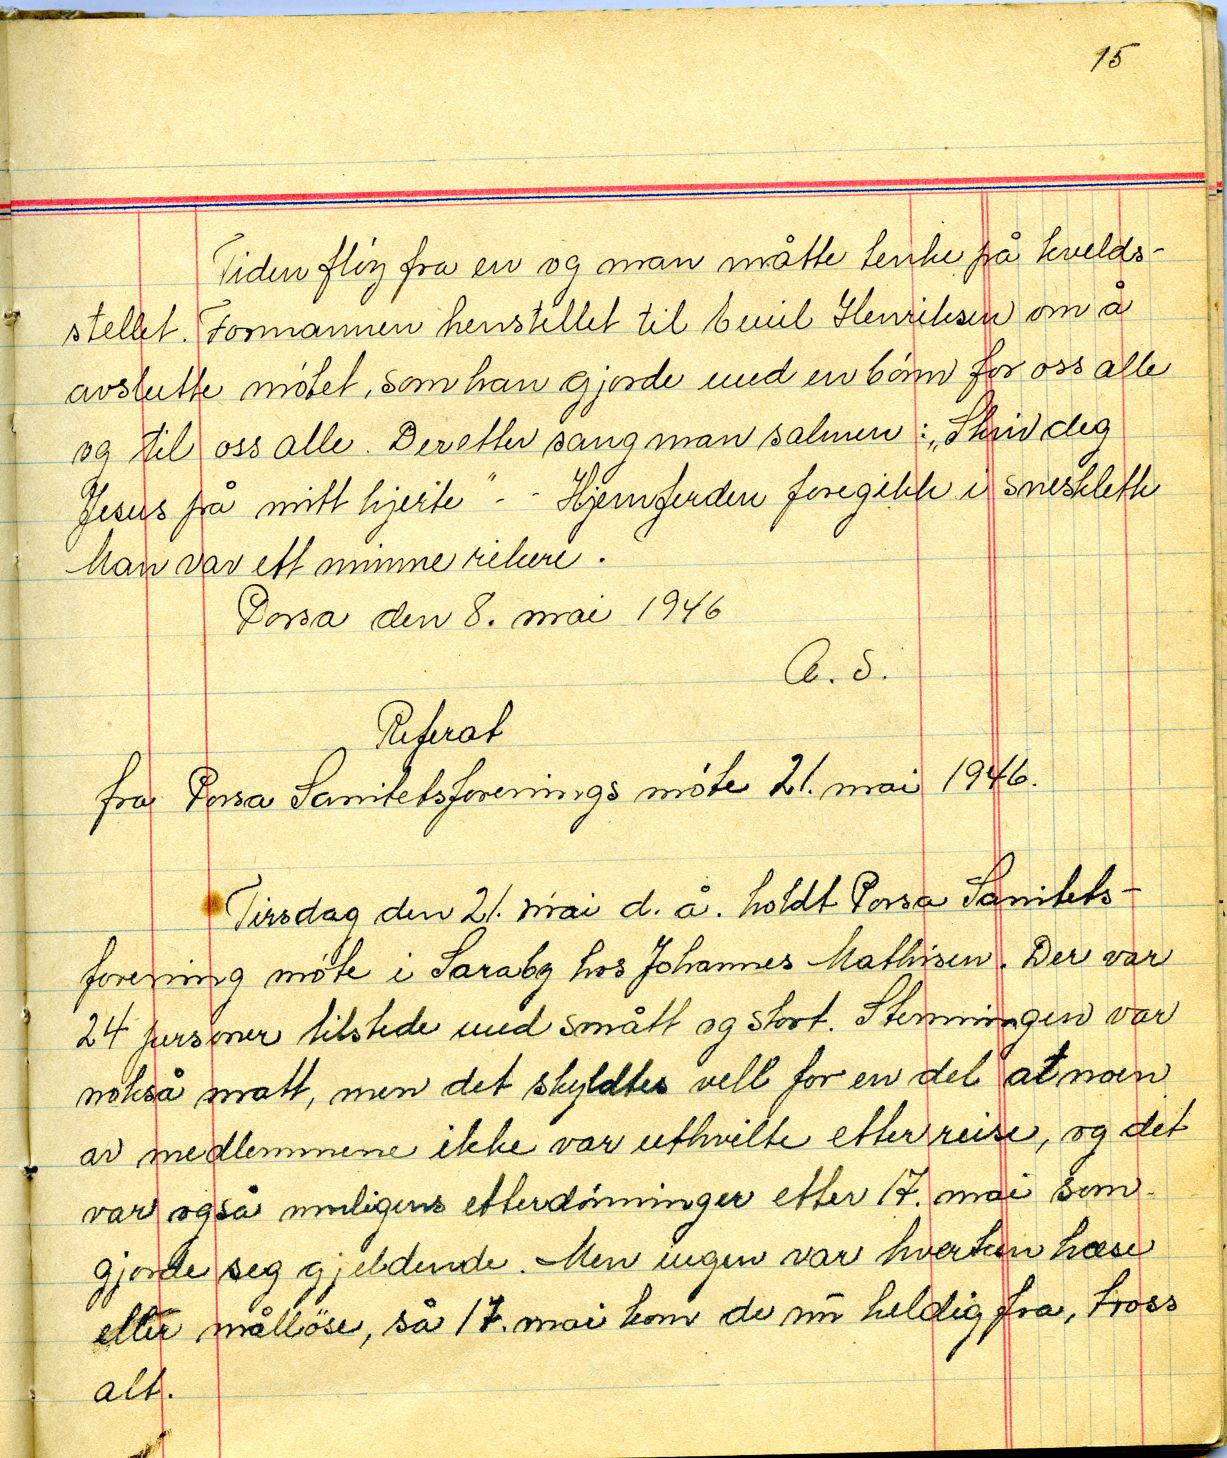 15
Tiden fløy fra en og man måtte tenke på kvelds-
stellet. Formannen henstillet til Emil Henriksen om å
avslutte møtet, som han gjorde med en bønn for oss alle
og til oss alle. Deretter sang man salmen: „Skriv deg
Jesus på mitt hjerte" - - Hjemferden foregikk i snesklette
Man var ett minne rikere.
Porsa den 8. mai 1946
A. S.
Referat
fra Porsa Sanitetsforenings møte 21. mai 1946.
Tirsdag den 21. mai d. å. holdt Porsa Sanitets-
forening møte i Saraby hos Johannes Mathisen. Der var
24 personer tilstede med smått og stort. Stemningen var
nokså matt, men det skyldtes vell for en del at noen
av medlemmene ikke var uthvilte etter reise, og det
var også muligens etterdønninger etter 17. mai som
gjorde seg gjeldende. Men ingen var hverken hæse
eller målløse, så 17. mai kom de nu heldig fra, tross
alt.